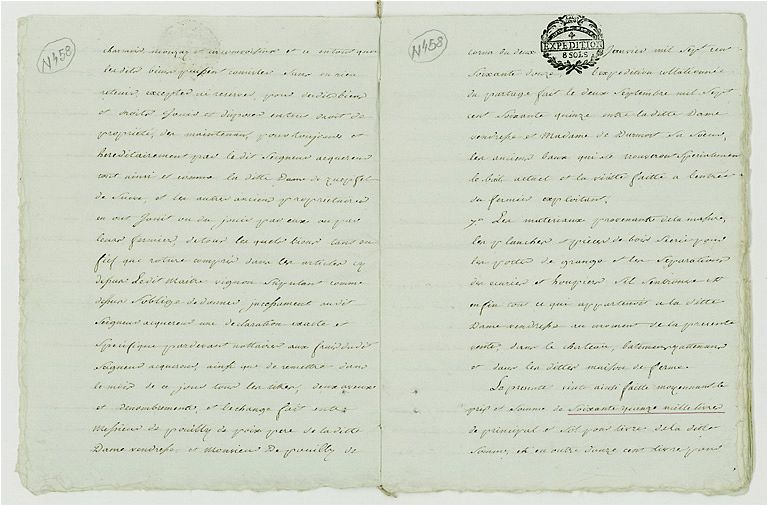 N458
et ce entout que
les dits biens puissent consister sans en rien
retenir, excepter ni reserver, pour desdits biens
et droits Jouir et disposer entous droit de
propriété, des maintenant pour toujours et
hereditairement par le dit Seigneur acquereur
tout ainsi et comme la ditte Dame de
et les autres ancien propriétaires
en ont Jouit ou du jouir par eux ou par
leurs fermiers, de tous les quels biens tant en
fief que roture compris dans les articles cy
dessus Ledit Maitre vignon Stipulant comme
dessus s'oblige de donner, incessament audit
Seigneur acquereur une declaration exacte et
Specifique pardevant nottaires aux frais du dit
Seigneur acquereur, ainsi que de remettre dans
le mois de ce jour tous les titres, deux aveux
et denombrements, et lechange fait entre
Messieur de pouilly de poix pere de laditte
Dame vendresse, et Monsieur De pouilly de
N458
EXPEDITION
8 SOLS
du deux Janvier mil Sept cent
Soixante douze, l'expedition collationnée
du partage fait le deux Septembre mil Sept
cent Soixante quinze entre la ditte Dame
vendresse et Madame de Durmort Sa Soeur,
les anciens baux qui se trouveront Specialement
le bail actuel et la visitte faitte a l'entrée
du fermier exploitant.
7° Les materiaux provenants de la masure,
les planches et pieces de bois Scié pour
les portes de grange et les Separations
des ecuries et
enfin tout ce qui appartenoit a la ditte
Dame vendresse au moment de la presente
vente, dans le chateau, batiments
et dans les dittes maison de ferme.
La presente vente ainsi faitte moyennant le
prix et Somme de Soixante quinze mille livres
de principal et Sol pour livre de la ditte
Somme, et en outre douze cent livres pour